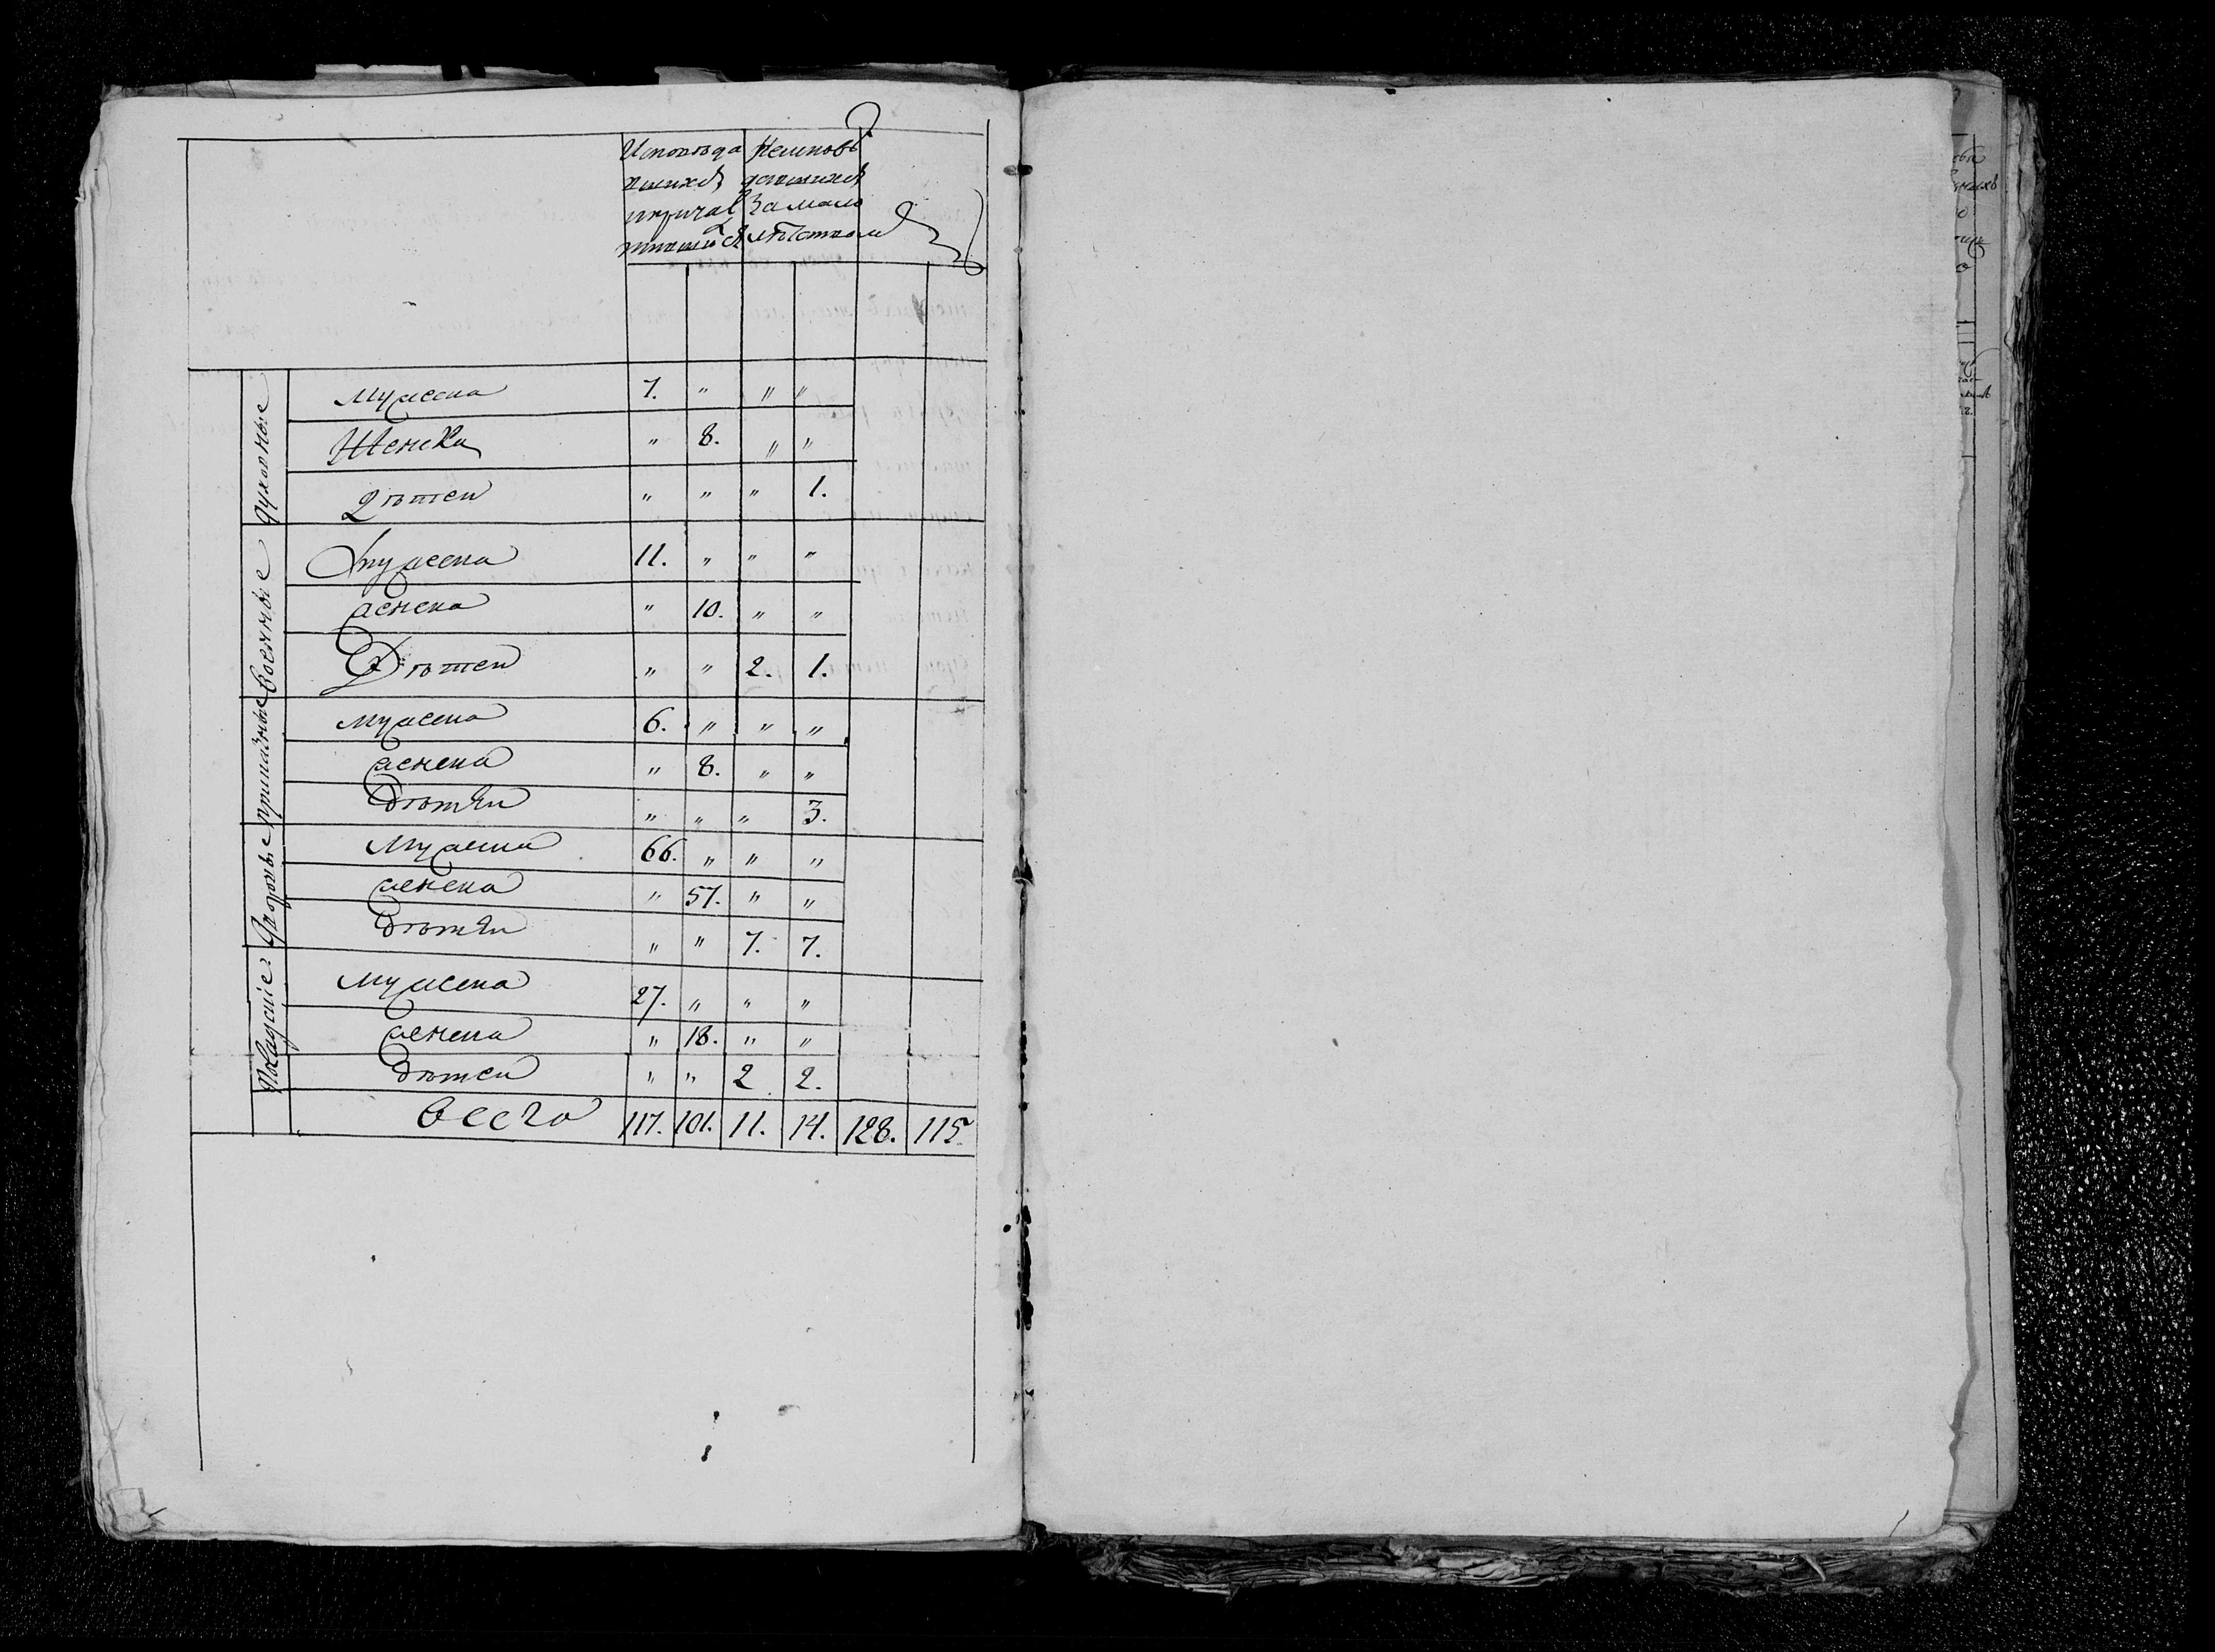 Исповѣда Неисповѣ
вшихся давшихся
и причас за мало
тившихся лѣтством
духовные
мужеска 7. " " "
Женска " 8. " "
Дѣтей " " " 1.
военные
мужеска 11. " " "
женска " 10. " "
Дѣтей " " 2. 1.
приказные
мужеска 6. " " "
женска " 8. " "
дѣтей " " " 3.
дворовые
мужеска 66. " " "
женска " 57. " "
дѣтей " " 7. 7.
Посадскіе
мужеска 27. " " "
женска " 18. " "
дѣтей " " 2 2.
всего 117. 101. 11. 14. 128. 115.